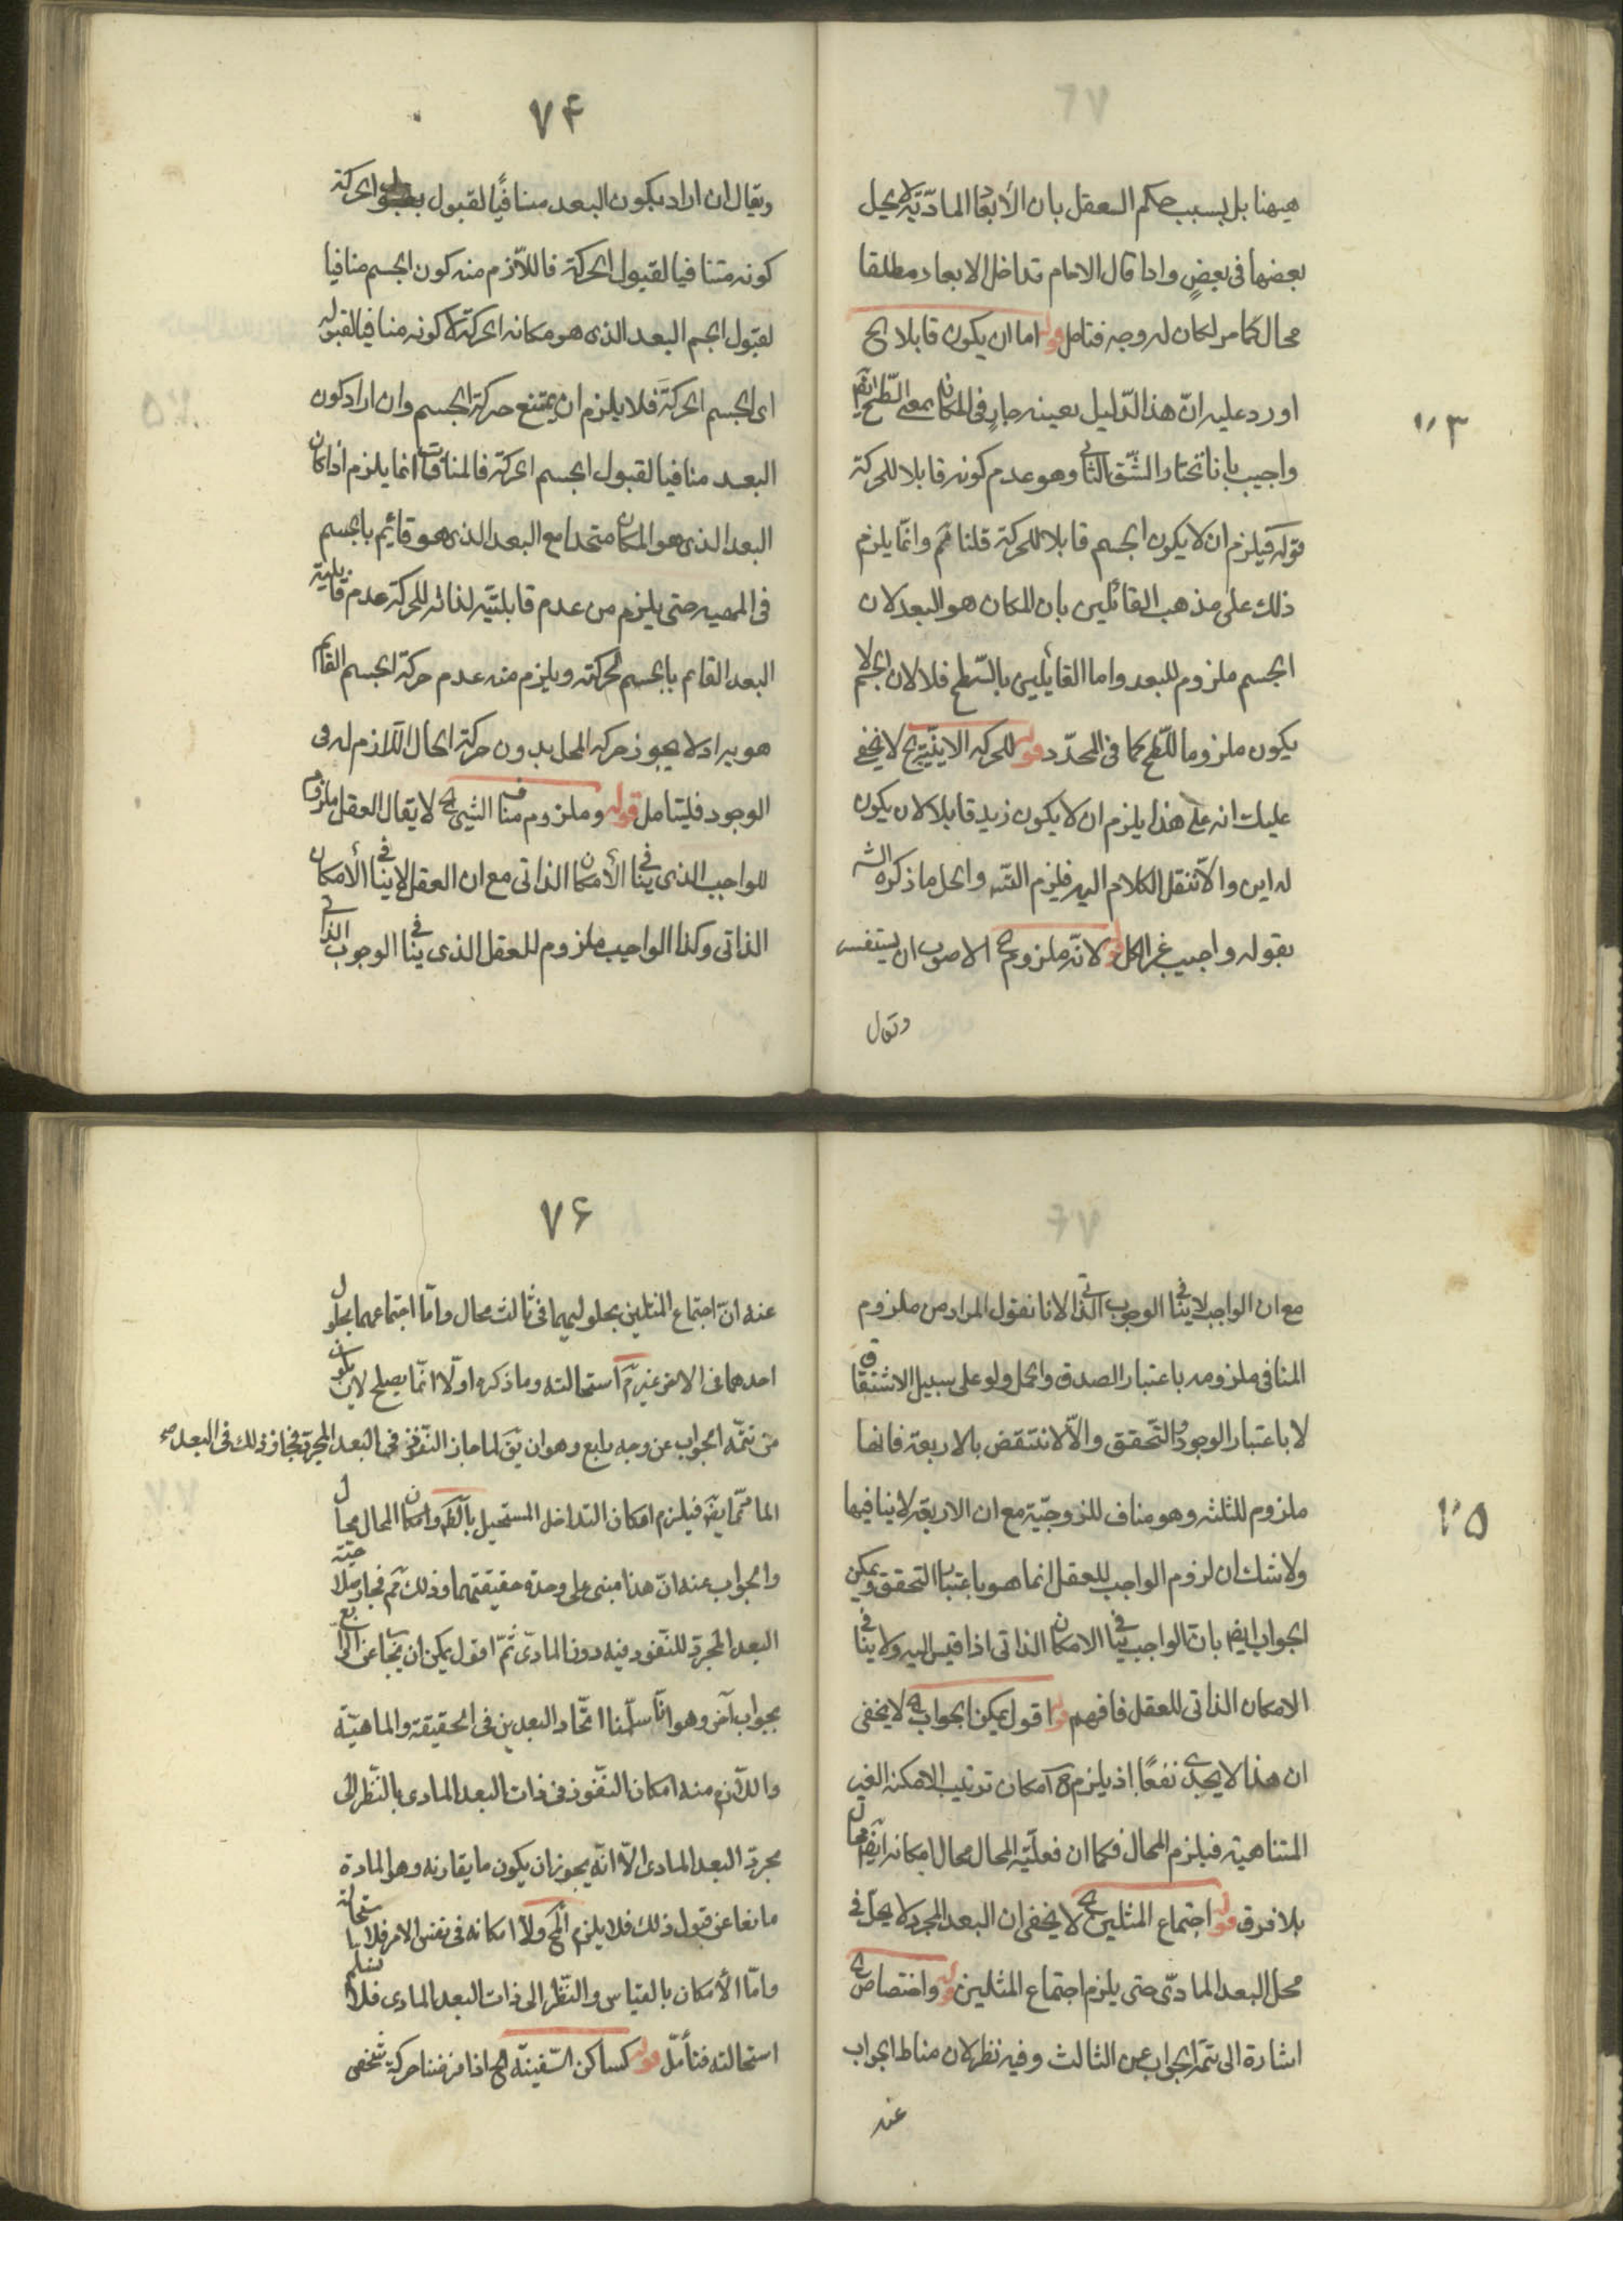 هيهنا بل بسبب حكم العقل بان الأبعاد الماديّة لا يحل
بعضها فى بعضٍ واذا قال الامام تداخل الابعاد مطلقا
محال كما مر لكان له وجه فتامل قوله اما ان يكون قابلا الخ
اورد عليه انّ هذا الدّليل بعينه جارٍ فى المكان بمعنى السّطح ايضا
واجيب بانا نختار الشّق الثانى وهو عدم كونه قابلا للحركة
قوله فيلزم ان لا يكون الجسم قابلا للحركة قلنا مم وانّما يلزم
ذلك على مذهب القائلين بان المكان هو البعد لان
الجسم ملزوم للبعد واما القائلين بالسّطح فلا لان الجسم لا
يكون ملزوما للسّطح كما فى المحدّد قوله للحركه الاينيّة الخ لا يخفى
عليك انه على هذا يلزم ان لا يكون زيد قابلا لان يكون
له اين والّا ننقل الكلام اليه فيلزم التسه والحل ما ذكره الشه
بقوله واجيب عن الحل قوله لانّه ملزوم الخ الاصوب ان يستفسر
وتقال
٧٤
ويقال ان اراد بكون البعد منافيًا لقبول الحركة
كونه متنافيا لقبول الحركة فاللّازم منه كون الجسم منافيا
لقبول الجسم البعد الذى هو مكانه الحركة لا كونه منافيا لقبوله
اى الجسم الحركة فلا يلزم ان يمتنع حركة الجسم وان اراد كون
البعد منافيا لقبول الجسم الحركة فالمنافات انما يلزم اذا كان
البعد الذى هو المكان متحدا مع البعد الذى هو قائم بالجسم
فى المهيه حتى يلزم من عدم قابليّته لذاته للحركة عدم قابلية
البعد القايم بالجسم لحركته ويلزم منه عدم حركة الجسم القائم
هو به اذ لا يجوز حركة المحل بدون حركة الحال اللّازم له فى
الوجود فليتامل قوله وملزوم منافى الشيئ الخ لا يقال العقل ملزوم
للواجب الذى ينافى الأمكان الذاتى مع ان العقل لا ينافى الأمكان
الذاتى وكذا الواجب ملزوم للعقل الذى ينافى الوجوب الذاتى
مع ان الواجب لا ينافى الوجوب الذاتى لانا نقول المراد من ملزوم
المنافى ملزومه باعتبار الصدق والحمل ولو على سبيل الاشتقاق
لا باعتبار الوجود والتحقق والّا لانتقض بالاربعة فانها
ملزوم للثلثه وهو مناف للزوجيّة مع ان الاربعة لا ينافيها
ولا شك ان لزوم الواجب للعقل انما هو باعتبار التحقق ويمكن
الجواب ايضا بانّ الواجب ينافى الامكان الذاتى اذا قيس اليه ولا ينافى
الامكان الذاتى للعقل فافهم قوله اقول يمكن الجواب الخ لا يخفى
ان هذا لا يجدى نفعًا اذ يلزم ح امكان ترتيب الامكنه الغير
المتناهية فيلزم المحال فكما ان فعليّة المحال محال امكانه ايضا محال
بلا فرق قوله اجتماع المثلين الخ لا يخفى ان البعد المجرد لا يحل فى
محل البعد المادّى حتى يلزم اجتماع المثلين قوله واختصاص الخ
اشارة الى تتمّة الجواب عن الثالث وفيه نظر لان مناط الجواب
عنه
٧٦
عنه انّ اجتماع المثلين بحلوليهما فى ثالث محال وامّا اجتماعهما بحلول
احدهما فى الاخر غير مم استحالته وما ذكره اولّا انّما يصلح لان يكون
من تتمّه الجواب عن وجه رابع وهو ان يق لما جاز النّفوذ فى البعد المجرد فجاز ذلك فى البعد
الما ممّا يقه فيلزم امكان التداخل المستحيل بالضه وامكان المحال محال
والجواب عنه انّ هذا مبنى على وحدة حقيقتهما وذلك مم فجاز صلاحيّة
البعد المجرد للنّفوذ فيه دون المادّى ثمّ اقول يمكن ان يجاب عن الرّابع
بجواب آخر وهو انّا سلّمنا اتّحاد البعدين فى الحقيقة والماهيّة
واللّازم منه امكان النّفوذ فى ذات البعد المادى بالنّظر الى
مجرد البعد المادى الّا انّه يجوز ان يكون ما يقارنه وهو المادة
مانعا عن قبول ذلك فلا يلزم المح ولا امكانه فى نفس الامر فلا استحالة
وامّا الأمكان بالقياس والنّظر الى ذات البعد المادى فلا نسلم
استحالته فتأمّل قوله كساكن السّفينة الخ اذا فرضنا حركة شخص